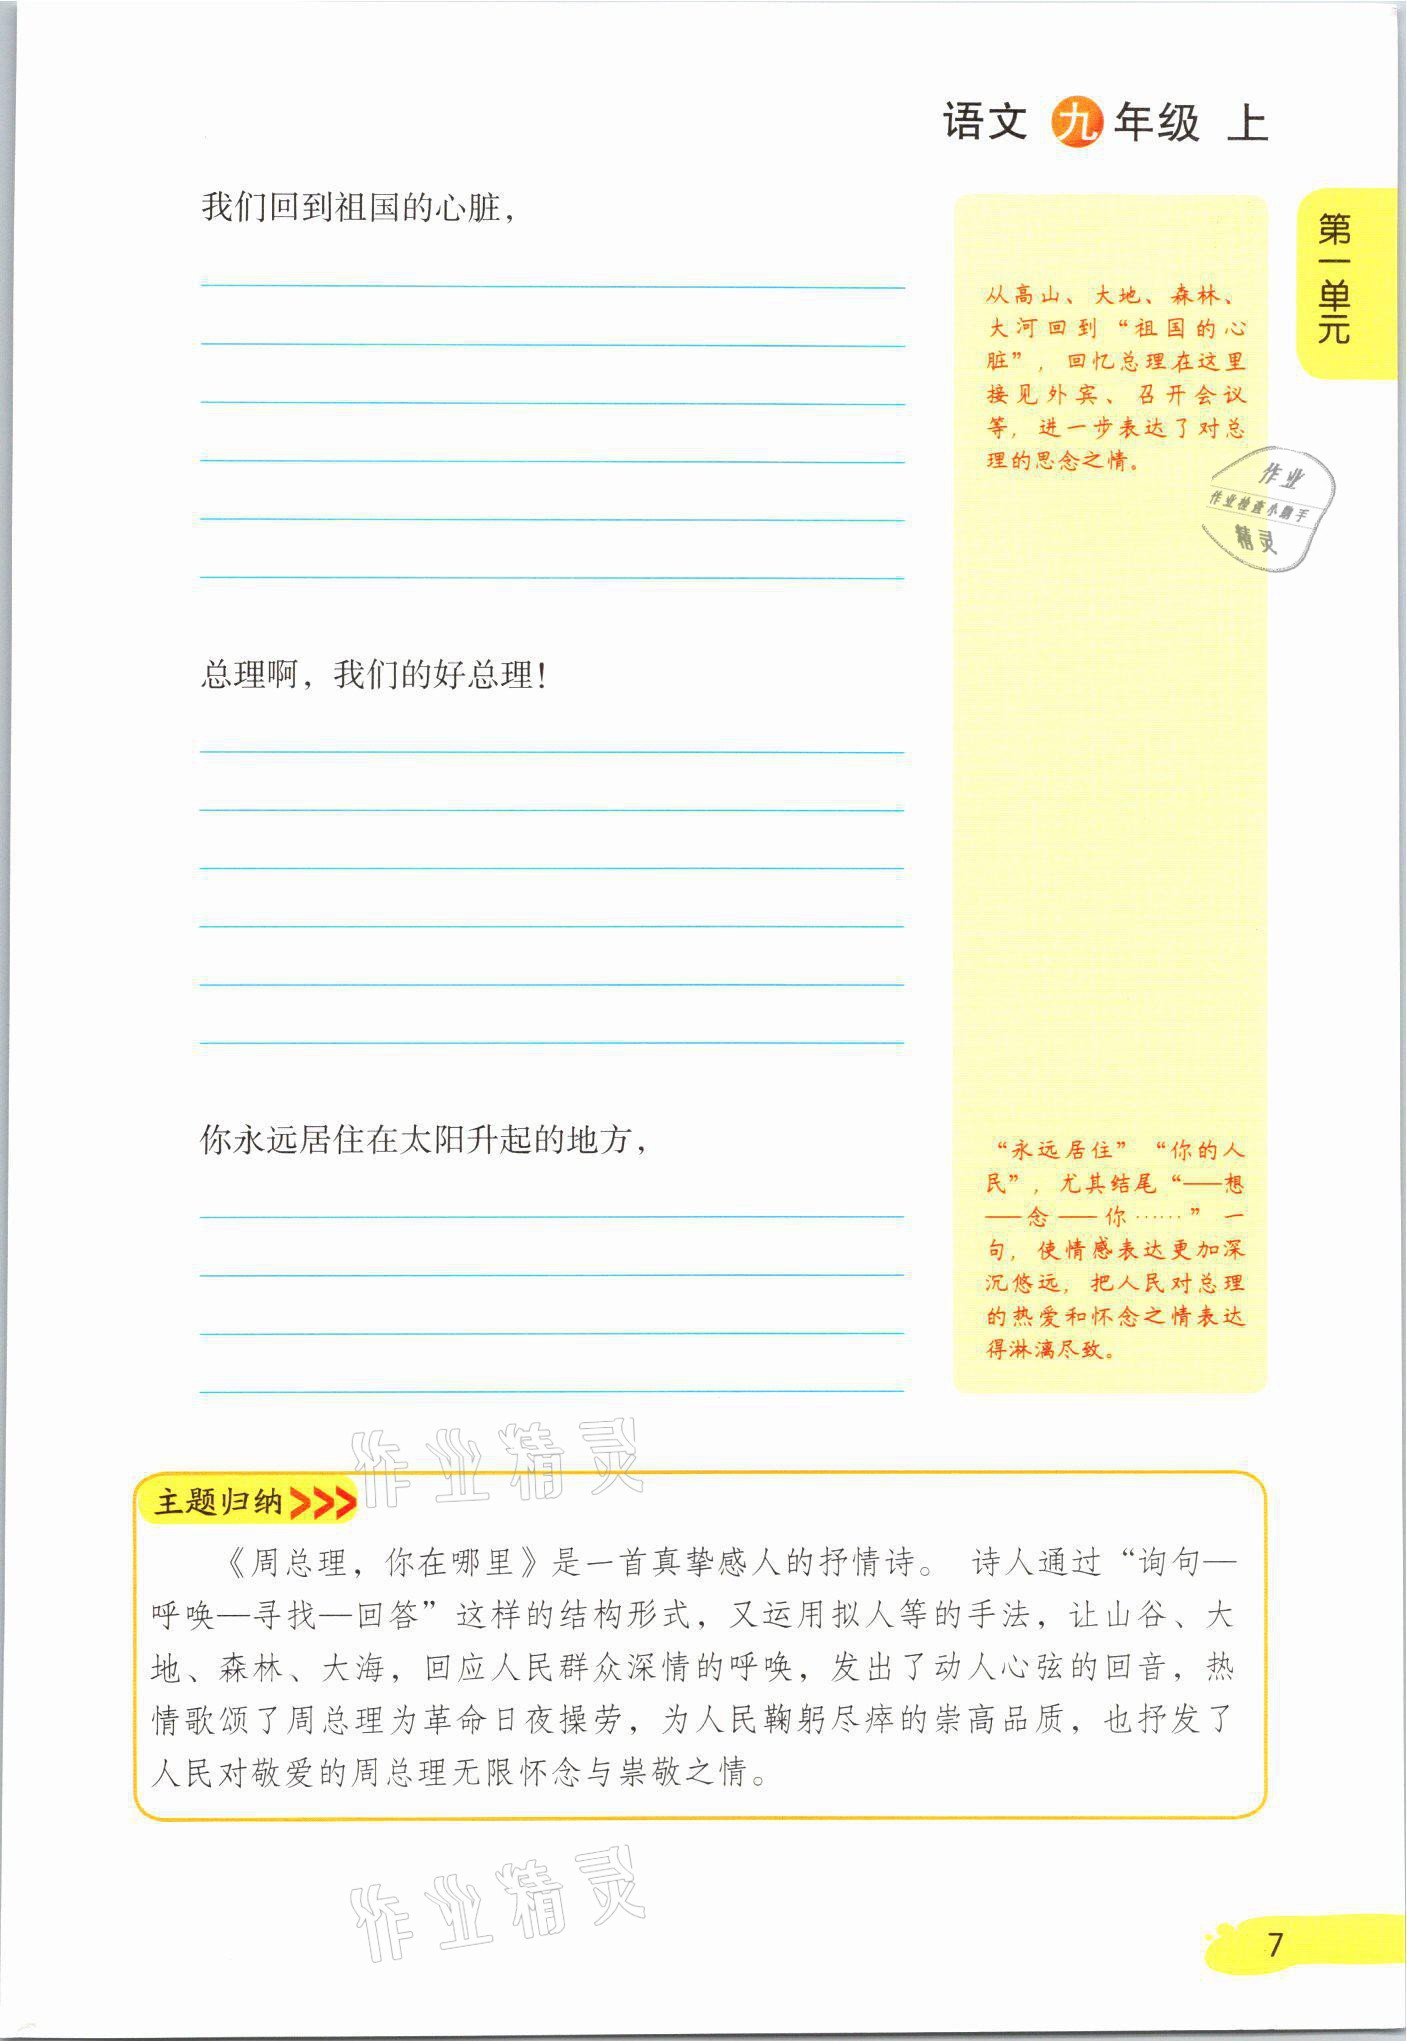 语文 九 年级 上
第一单元
我们回到祖国的心脏，
从高山、大地、森林、
大河回到“祖国的心
脏”，回忆总理在这里
接见外宾、召开会议
等，进一步表达了对总
理的思念之情。
作业
作业检查小助手
精灵
总理啊，我们的好总理！
你永远居住在太阳升起的地方，
“永远居住”“你的人
民”，尤其结尾“——想
——念——你……”一
句，使情感表达更加深
沉悠远，把人民对总理
的热爱和怀念之情表达
得淋漓尽致。
作业精灵
主题归纳
《周总理，你在哪里》是一首真挚感人的抒情诗。 诗人通过“询句—
呼唤—寻找—回答”这样的结构形式，又运用拟人等的手法，让山谷、大
地、森林、大海，回应人民群众深情的呼唤，发出了动人心弦的回音，热
情歌颂了周总理为革命日夜操劳，为人民鞠躬尽瘁的崇高品质，也抒发了
人民对敬爱的周总理无限怀念与崇敬之情。
作业精灵
7